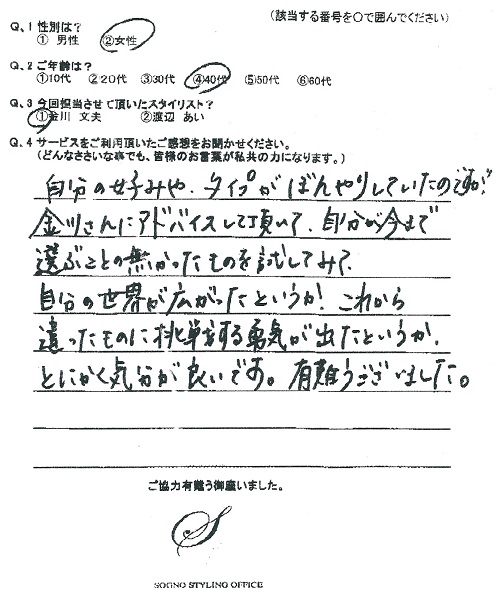 (該当する番号を○で囲んでください)
Q、1 性別は?
① 男性 ②女性
Q、2 ご年齢は?
①10代 ②20代 ③30代 ④40代 ⑤50代 ⑥60代
Q、3 今回担当させて頂いたスタイリスト?
①金川 文夫 ②渡辺 あい
Q、4 サービスをご利用頂いたご感想をお聞かせください。
(どんなささいな事でも、皆様のお言葉が私共の力になります。)
自分の好みや、タイプがぼんやりしていたのですが!
金川さんにアドバイスして頂いて、自分が今まで
選ぶことの無かったものを試してみて
自分の世界が広がったというか! これから
違ったものに挑戦する勇気が出たというか、
とにかく気分が良いです。有難うございました。
ご協力有難う御座いました。
S
SOGNO STYLING OFFICE